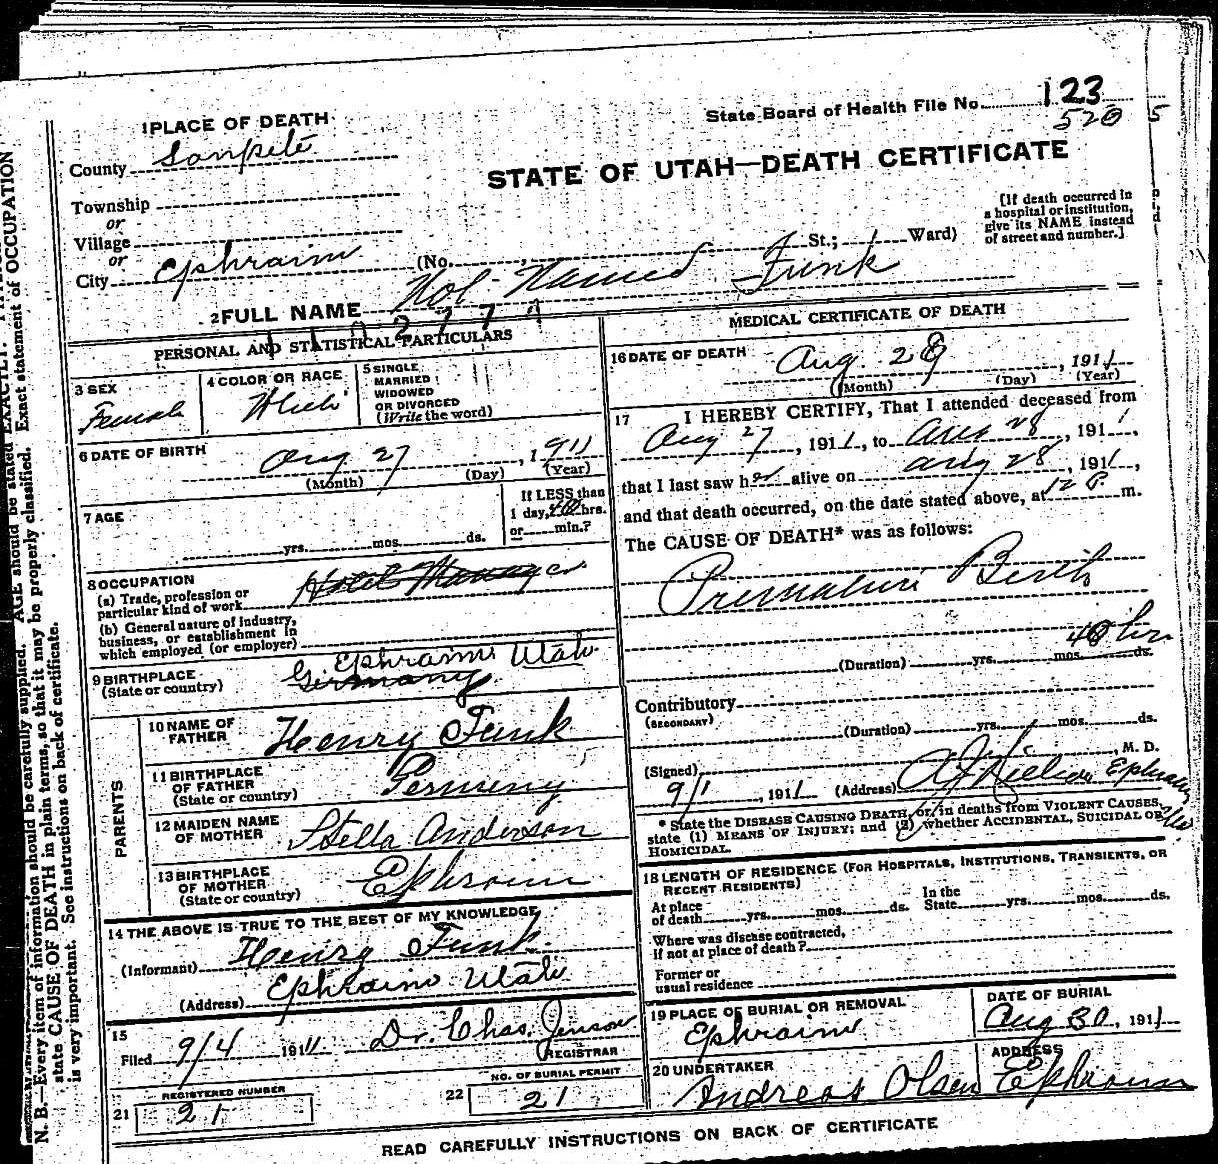 State Board of Health File No. 123
520 5
1 PLACE OF DEATH
County Sanpete
STATE OF UTAH—DEATH CERTIFICATE
Township
or
Village
or
City Ephraim (No. , St.; 1 Ward)
[If death occurred in
a hospital or institution,
give its NAME instead
of street and number.]
2 FULL NAME Not Named Funk
PERSONAL AND STATISTICAL PARTICULARS
3 SEX
Female
4 COLOR OR RACE
White
5 SINGLE
MARRIED
WIDOWED
OR DIVORCED
(Write the word)
6 DATE OF BIRTH
Aug 27, 1911
(Month) (Day) (Year)
7 AGE
yrs. mos. ds.
If LESS than
1 day, 40 hrs.
or min.?
8 OCCUPATION
(a) Trade, profession or
particular kind of work Hotel Manager
(b) General nature of industry,
business, or establishment in
which employed (or employer)
9 BIRTHPLACE
(State or country)
Ephraim Utah.
Germany
PARENTS
10 NAME OF
FATHER
Henry Funk
11 BIRTHPLACE
OF FATHER
(State or country)
Germeny
12 MAIDEN NAME
OF MOTHER
Stella Anderson
13 BIRTHPLACE
OF MOTHER
(State or country)
Ephraim
14 THE ABOVE IS TRUE TO THE BEST OF MY KNOWLEDGE
(Informant) Henry Funk.
(Address) Ephraim Utah
15
Filed 9/4 1911 Dr. Chas. Jenson
REGISTRAR
21 REGISTERED NUMBER
21
22 NO. OF BURIAL PERMIT
21
MEDICAL CERTIFICATE OF DEATH
16 DATE OF DEATH
Aug. 28, 1911
(Month) (Day) (Year)
17 I HEREBY CERTIFY, That I attended deceased from
Aug 27, 1911, to Aug 28, 1911,
that I last saw her alive on Aug 28, 1911,
and that death occurred, on the date stated above, at 12 P m.
The CAUSE OF DEATH* was as follows:
Premature Birth
40 hrs
(Duration) yrs. mos. ds.
Contributory
(SECONDARY)
(Duration) yrs. mos. ds.
(Signed) , M. D.
9/1, 1911 (Address) Ephraim
* State the DISEASE CAUSING DEATH, or, in deaths from VIOLENT CAUSES,
state (1) MEANS OF INJURY; and (2) whether ACCIDENTAL, SUICIDAL OR
HOMICIDAL.
18 LENGTH OF RESIDENCE (FOR HOSPITALS, INSTITUTIONS, TRANSIENTS, OR
RECENT RESIDENTS)
At place
of death yrs. mos. ds.
In the
State yrs. mos. ds.
Where was disease contracted,
if not at place of death?
Former or
usual residence
19 PLACE OF BURIAL OR REMOVAL
Ephraim
DATE OF BURIAL
Aug 30, 1911
20 UNDERTAKER
Andreas Olsen
ADDRESS
Ephraim
READ CAREFULLY INSTRUCTIONS ON BACK OF CERTIFICATE
N. B.—Every item of information should be carefully supplied. AGE should be stated EXACTLY.
state CAUSE OF DEATH in plain terms, so that it may be properly classified. Exact statement of OCCUPATION
is very important. See instructions on back of certificate.